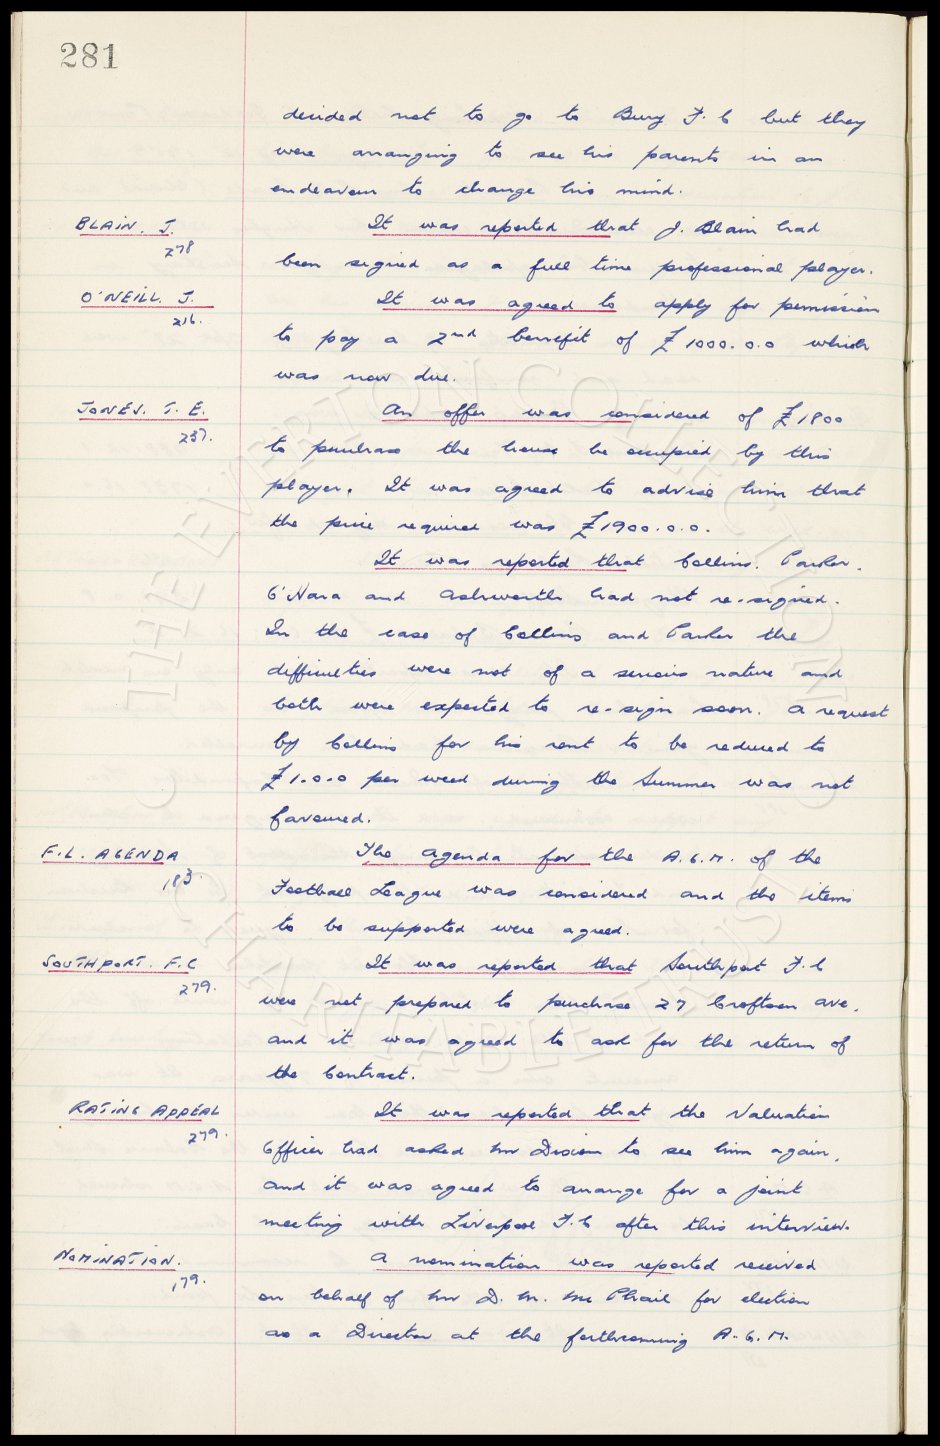 281
decided not to go to Bury F.C but they
were arranging to see his parents in an
endeavour to change his mind.
BLAIN. J. It was reported that J. Blain had
278
been signed as a full time professional player.
O'NEILL. J. It was agreed to apply for permission
216.
to pay a 2nd benefit of £1000.0.0 which
was now due.
JONES. T. E. An offer was considered of £1800
237.
to purchase the house he occupied by this
player. It was agreed to advise him that
the price required was £1900.0.0.
It was reported that Collins. Parker.
O'Hara and Ashworth had not re-signed.
In the case of Collins and Parker the
difficulties were not of a serious nature and
both were expected to re-sign soon. A request
by Collins for his rent to be reduced to
£1.0.0 per week during the Summer was not
favoured.
F.L. AGENDA The Agenda for the A.G.M. of the
183.
Football League was considered and the items
to be supported were agreed.
SOUTHPORT. F.C It was reported that Southport F.C
279.
were not prepared to purchase 27 Croftson Ave.
and it was agreed to ask for the return of
the Contract.
RATING APPEAL It was reported that the Valuation
279.
Officer had asked Mr Dixon to see him again,
and it was agreed to arrange for a joint
meeting with Liverpool F.C after this interview.
NOMINATION. A nomination was reported received
179.
on behalf of Mr D. M. Mc Phail for election
as a Director at the forthcoming A.G.M.
THE EVERTON COLLECTION
CHARITABLE TRUST